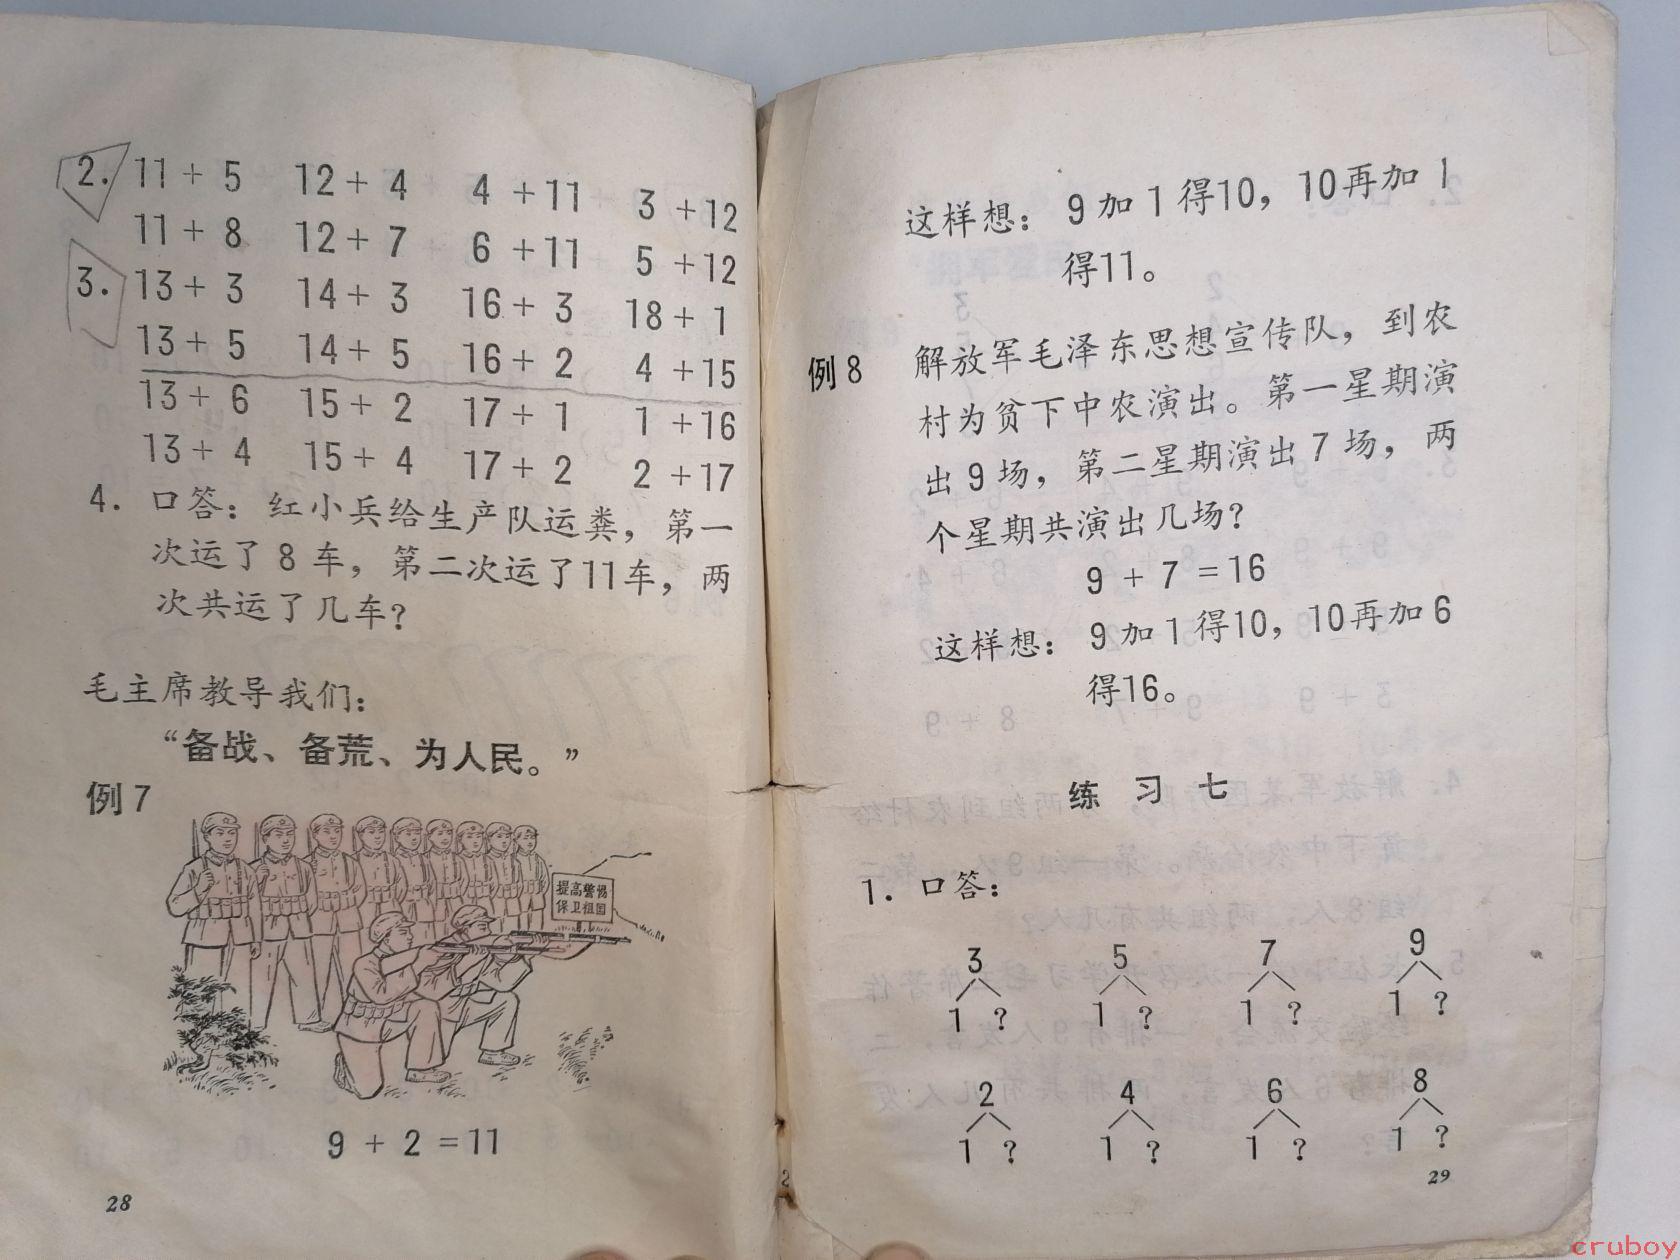 2. 11 + 5 12 + 4 4 + 11 3 + 12
11 + 8 12 + 7 6 + 11 5 + 12
3. 13 + 3 14 + 3 16 + 3 18 + 1
13 + 5 14 + 5 16 + 2 4 + 15
13 + 6 15 + 2 17 + 1 1 + 16
13 + 4 15 + 4 17 + 2 2 + 17
4. 口答：红小兵给生产队运粪，第一
次运了 8 车，第二次运了11车，两
次共运了几车？
毛主席教导我们：
“备战、备荒、为人民。”
例 7
提高警惕
保卫祖国
9 + 2 = 11
28
这样想： 9 加 1 得10，10再加 1
得11。
例 8 解放军毛泽东思想宣传队，到农
村为贫下中农演出。第一星期演
出 9 场，第二星期演出 7 场，两
个星期共演出几场？
9 + 7 = 16
这样想： 9 加 1 得10，10再加 6
得16。
练 习 七
1. 口答：
3 5 7 9
1 ? 1 ? 1 ? 1 ?
2 4 6 8
1 ? 1 ? 1 ? 1 ?
29
cruboy